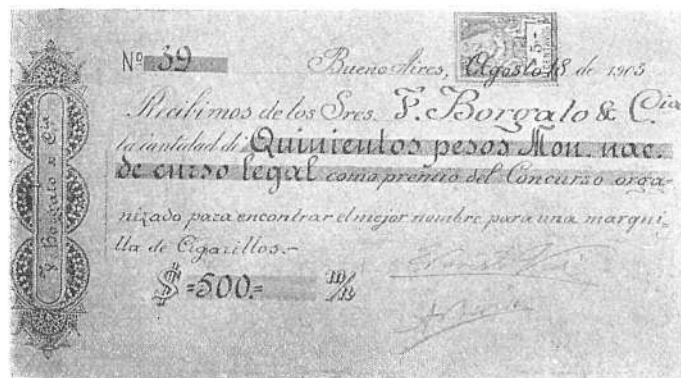 Nº 39
Buenos Aires, Agosto 18 de 1903
Recibimos de los Sres. F. Borgalo & Cia
la cantidad de Quinientos pesos Mon. nac.
de curso legal como premio del Concurso orga-
nizado para encontrar el mejor nombre para una marqui-
lla de Cigarillos.-
$ =500.= m/n
F. Borgalo & Cia